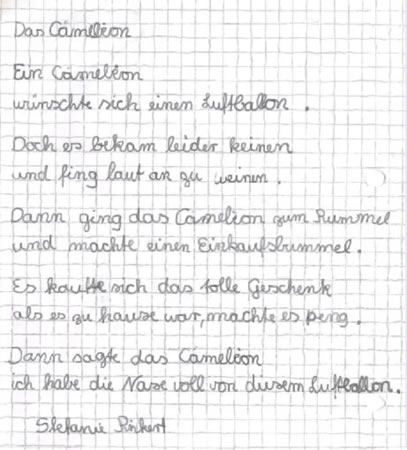 Das Cámeléon
Ein Cámeléon
wünschte sich einen Luftballon .
Doch es bekam leider keinen
und fing laut an zu weinen .
Dann ging das Cameleon zum Rummel
und machte einen Einkaufsbummel .
Es kaufte sich das tolle Geschenk
als es zu hause war, machte es peng .
Dann sagte das Cámeléon
ich habe die Nase voll von diesem Luftballon .
Stefanie